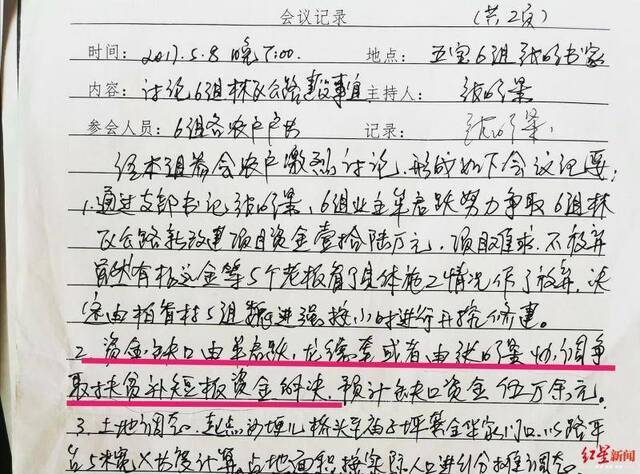 会议记录 (共2页)
时间：2017.5.8 晚7:00 地点：五宝6组张明书家
内容：讨论6组林区公路建设事宜 主持人：张明景
参会人员：6组各农户户长 记录：张明景
经本组参会农户激烈讨论，形成如下会议纪要：
1.通过支部书记张明景，6组业主牟启跃努力争取6组林
区公路新改建项目资金壹拾陆万元，项目难求，不放弃
首次有 金等5个老板看了具体施工情况作了放弃，决
定由柏 村5组魏进强按小时进行开挖修建。
2、资金缺口由牟启跃、龙德 或者由张明景协调争
取扶贫补短板资金解决，预计缺口资金伍万余元。
3、土地调 ，起点 桥头 坪 金华家门口，以路平
5米宽×长度计算，占地面积按实际人 进行分摊调
红星新闻